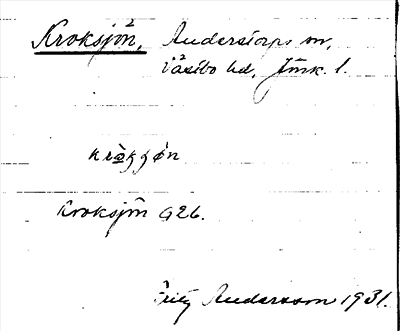 Kroksjön, Anderstorps sn,
Västbo hd, Jönk. l.
Kroksjön G26.
Fritz Andersson 1931.